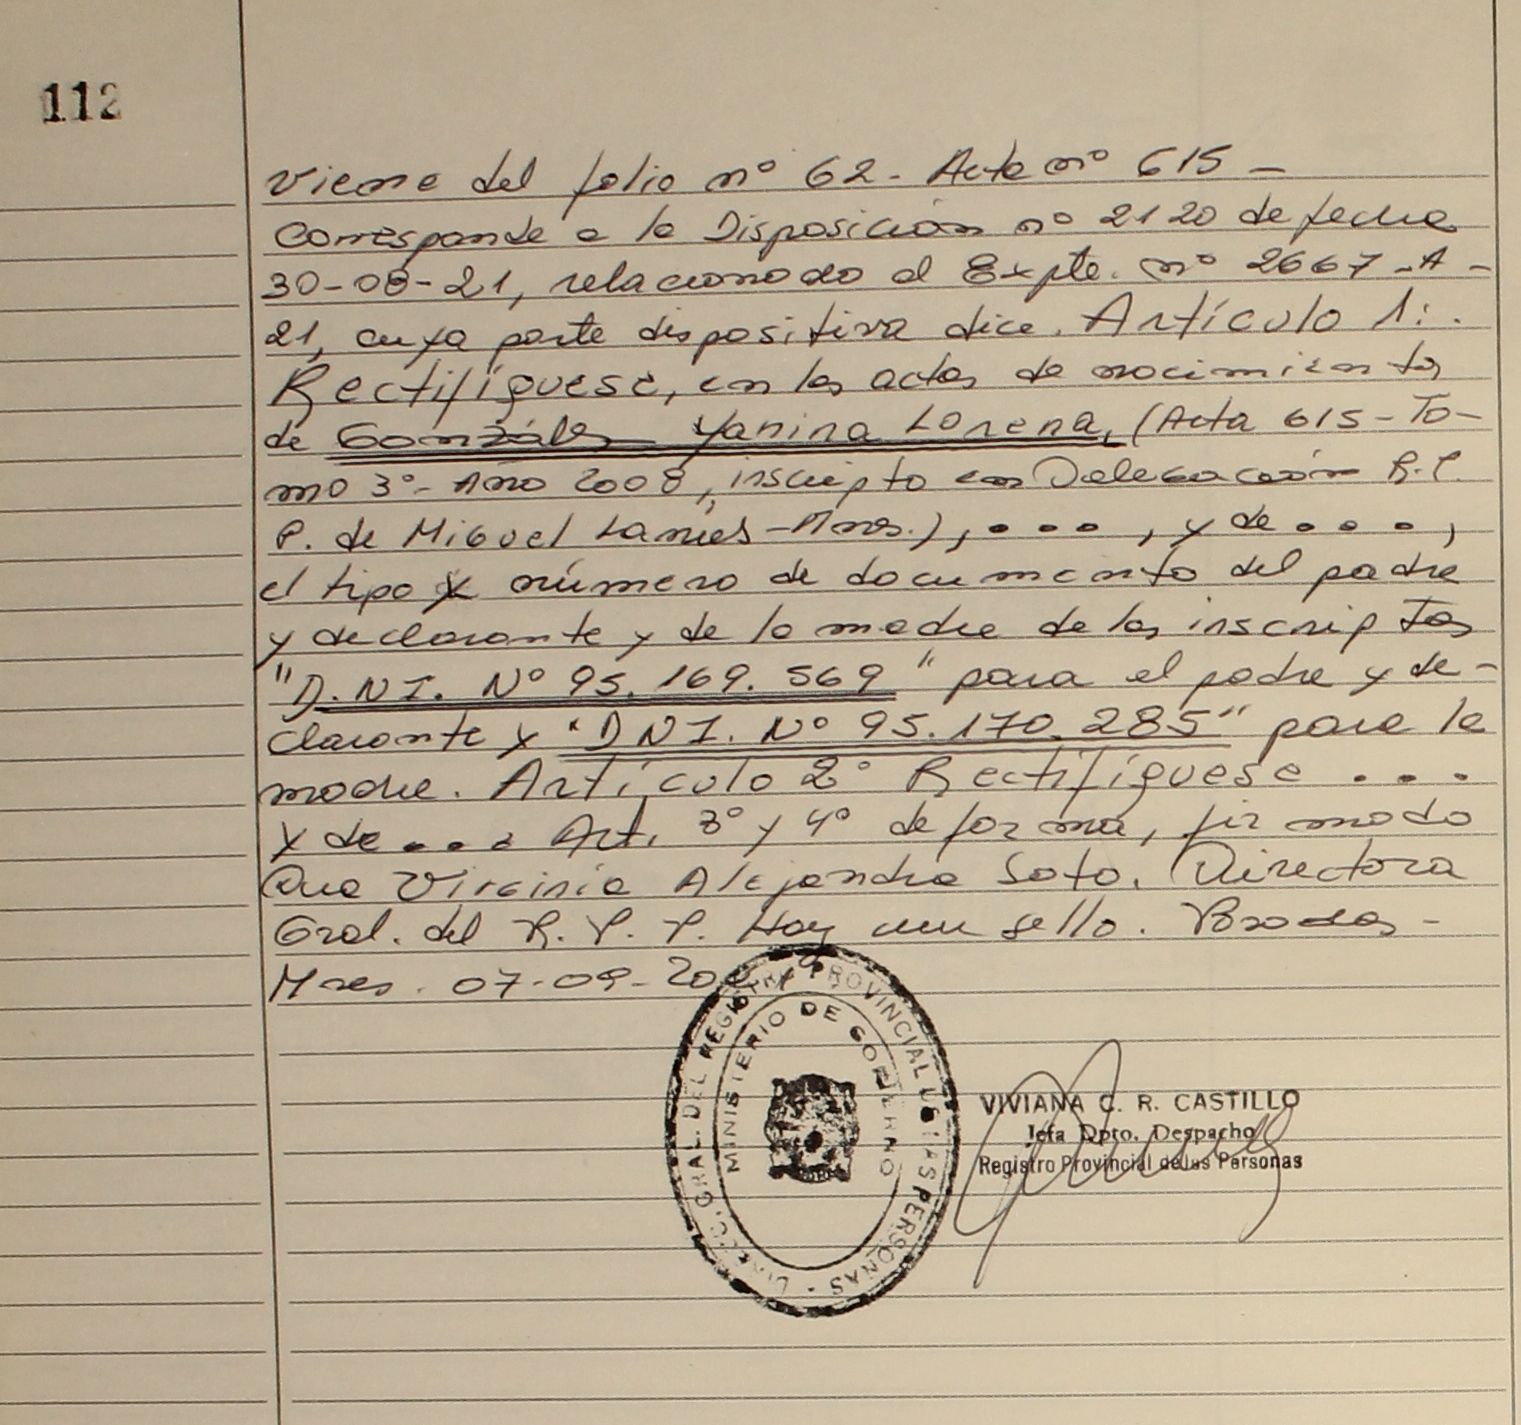 112
Viene del folio nº 62 - Acta nº 615 -
Corresponde a la Disposición nº 2120 de fecha
30-08-21, relacionado al Expte. nº 2667 - A -
21, cuya parte dispositiva dice. Artículo 1:.
Rectifíquese, en las actas de nacimientos
de González Yanina Lorena, (Acta 615 - To-
mo 3º - Año 2008, inscripto en Delegación R.P.
P. de Miguel Lanús - Mnes.), . . . , y de . . . ,
el tipo y número de documento del padre
y declarante y de la madre de los inscriptos
"D.N.I. Nº 95.169.569" para el padre y de-
clarante y "D N I. Nº 95.170.285" para la
madre. Artículo 2º Rectifíquese . . .
y de . . . Art. 3º y 4º de forma, firmado
Dra Virginia Alejandra Soto. Directora
Gral. del R. P. P. Hay un sello. Posadas -
Mnes. 07-09-2021
DIREC. GRAL. DEL REGISTRO PROVINCIAL DE LAS PERSONAS -
MINISTERIO DE GOBIERNO
VIVIANA C. R. CASTILLO
Jefa Dpto. Despacho
Registro Provincial de las Personas